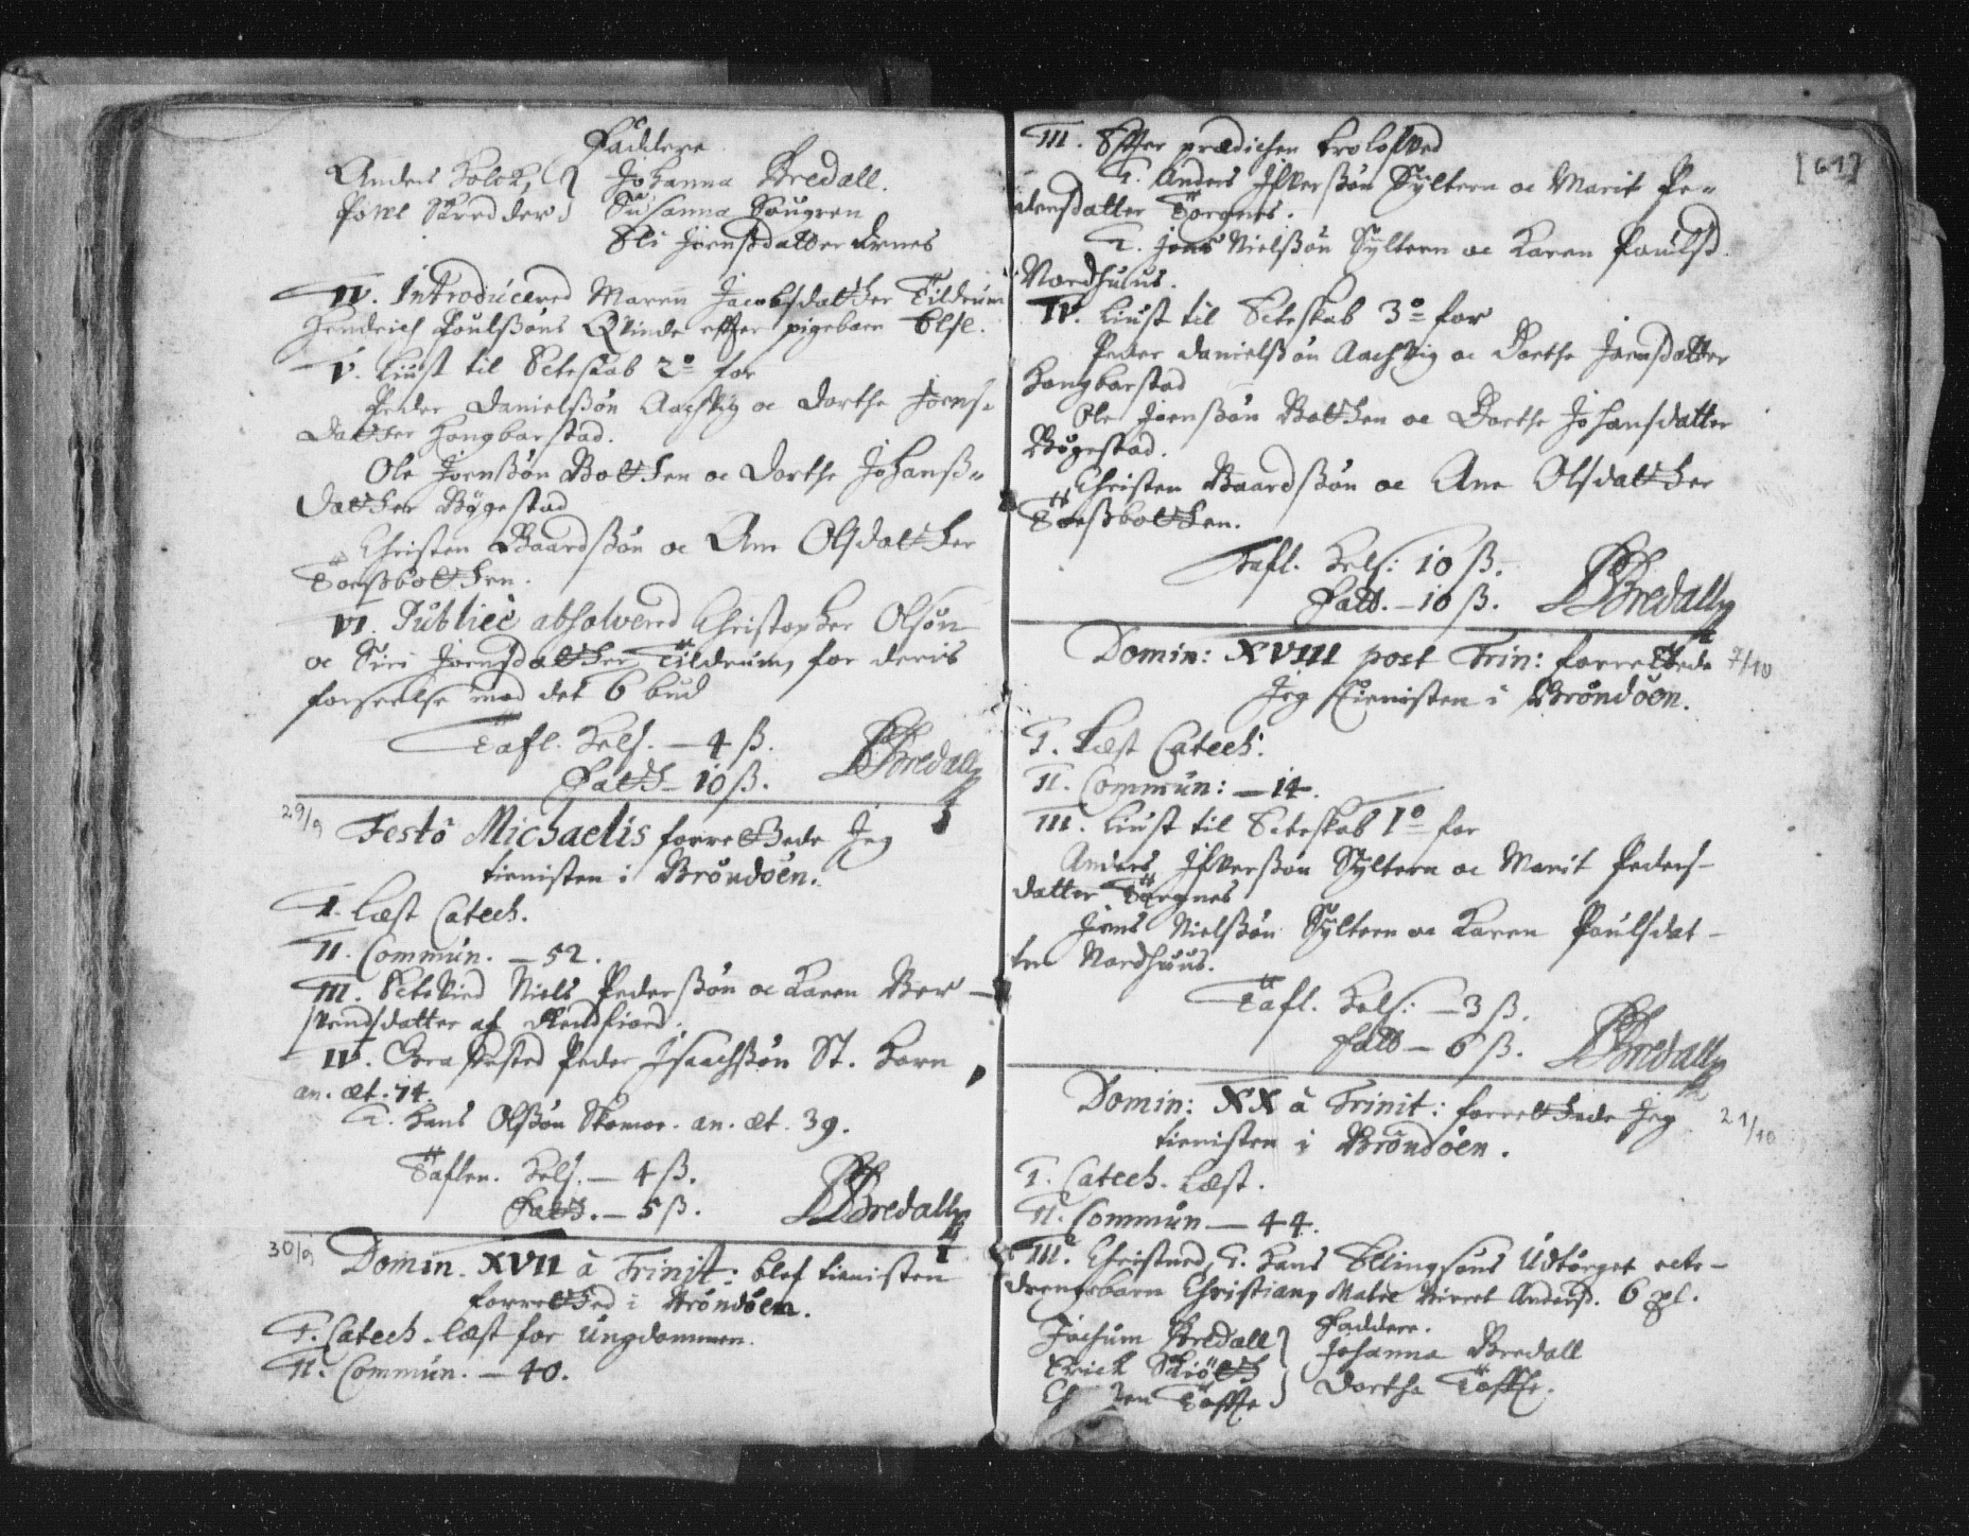 Faddere
Anders Holck, } Johanna Bredall.
Skredder } Susanna
Jörnsdatter
IV. Introducered Maren Jacobsdatther Tildrum
Hendrich Poulssöns Qvinde effter pigebarn
V. Liust til Ecteskab 2º for
Peder Danielssön Aachvig oc Dorthe Jörns-
datther Hongbarstad.
Ole Jörenssön Botthen oc Dorthe Johanss-
datther Bögestad
Christen Baardssön oc Ane Olsdatther
Torssbotthen.
VI. Publicè absolvered Christopher Olsön
oc Siri Jörnsdatther Tildrum, for deris
forseelse mod det 6 bud
Tafl. Hels. — 4 ß.
Fatt. — 10 ß. Bredall
29/9 Festô Michaelis forretthede Jeg
tienisten i Bröndöen.
I. Læst Catech.
II. Commun. — 52.
III. Ectevied Niels Pederssön oc Karen Ber-
datter af
IV. Peder Isachssön St. Horn
an. æt. 74.
2. Hans Olssön Skomor. an. æt. 39.
Taflen. Hels. — 4 ß.
Fatt. — 5 ß. Bredall
30/9 Domin. XVII à Trinit: blef tienisten
forretthed i Bröndöen.
I. Catech. læst for ungdommen.
II. Commun. — 40.
[61]
III. Effter prædichen trolofved
1. Anders Ifverssön Sÿltern oc Marit Pe-
dersdatter Torgnes.
2. Jens Nielssön Sÿltern oc Karen Poulsd.
Nordhuus.
IV. Liust til Ecteskab 3º for
Peder Danielssön Aachvig oc Dorthe Jörnsdatter
Hongbarstad
Ole Jörenssön Botthen oc Dorthe Johansdatter
Bögestad.
Christen Baardssön oc Ane Olsdatther
Torssbotthen.
Tafl. Hels: 10 ß.
Fatt. — 10 ß. Bredall
Domin: XVIII post Trin: forretthede 7/10
Jeg tienisten i Bröndöen.
I. Læst Catech:
II. Commun: — 14.
III. Liust til Ecteskab 1º for
Anders Ifverssön Sÿltern oc Marit Peders-
datter Torgnes
Jens Nielssön Sÿltern oc Karen Poulsdat-
ter Nordhuus.
Tafl. Hels: — 3 ß.
Fatt — 6 ß. Bredall
Domin: XX à Trinit: forretthede Jeg 21/10
tienisten i Bröndöen.
I. Catech. læst.
II. Commun — 44.
III. Christned, 1. Hans Ellingsöns Udtorget ecte-
drengebarn Christian, Mater Anders. 6
Faddere.
Jochum Bredall } Johanna Bredall
Erick } Dorthe Töffte.
Töffte }